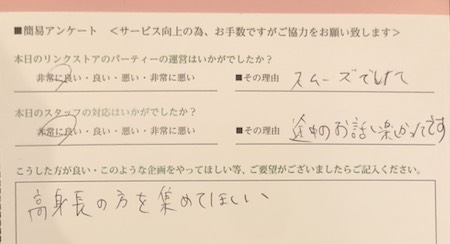 ■簡易アンケート ＜サービス向上の為、お手数ですがご協力をお願い致します＞
本日のリンクストアのパーティーの運営はいかがでしたか？
非常に良い・良い・悪い・非常に悪い ■その理由 スムーズでした
本日のスタッフの対応はいかがでしたか？
非常に良い・良い・悪い・非常に悪い ■その理由 途中のお話し楽しかったです
こうした方が良い・このような企画をやってほしい等、ご要望がございましたらご記入ください。
高身長の方を集めてほしい